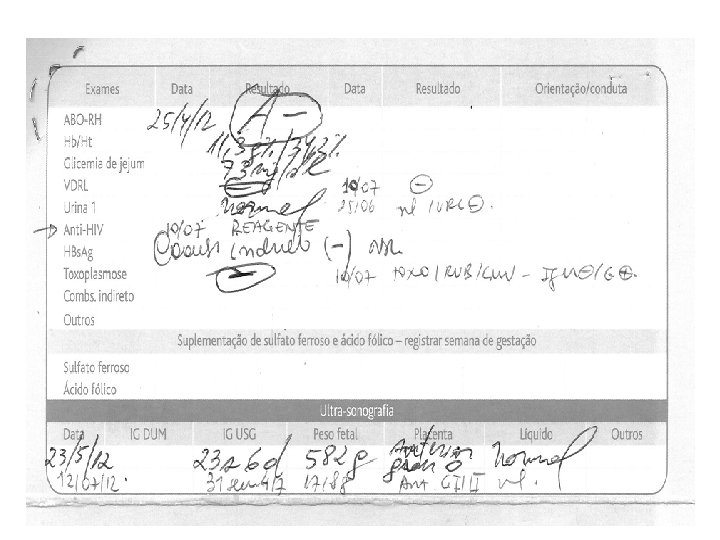 Exames Data Resultado Data Resultado Orientação/conduta
ABO-RH 25/4/12 A -
Hb/Ht 11,3g%/34,3%
Glicemia de jejum 73mg/dl
VDRL - 10/07 -
Urina 1 normal 25/06 nl /URC -.
Anti-HIV 10/07 REAGENTE
HBsAg Coombs indireto (-)
Toxoplasmose - 10/07 TOXO/RUB/CMV - IgM -/G +.
Combs. indireto
Outros
Suplementação de sulfato ferroso e ácido fólico – registrar semana de gestação
Sulfato ferroso
Ácido fólico
Ultra-sonografia
Data IG DUM IG USG Peso fetal Placenta Líquido Outros
23/5/12 23s6d 582g anterior grau 0 normal
12/07/12. 31sem 4/7 1788 Ant GI/II nl.